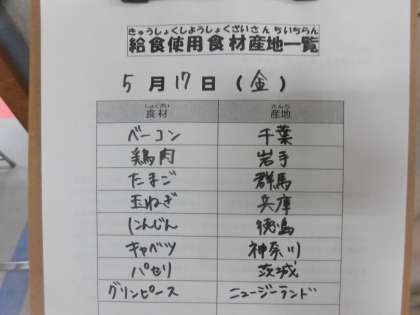 きゅうしょくしようしょくざいさんちいちらん
給食使用食材産地一覧
5月17日(金)
しょくざい さんち
食材 産地
ベーコン 千葉
鶏肉 岩手
たまご 群馬
玉ねぎ 兵庫
にんじん 徳島
キャベツ 神奈川
パセリ 茨城
グリンピース ニュージーランド